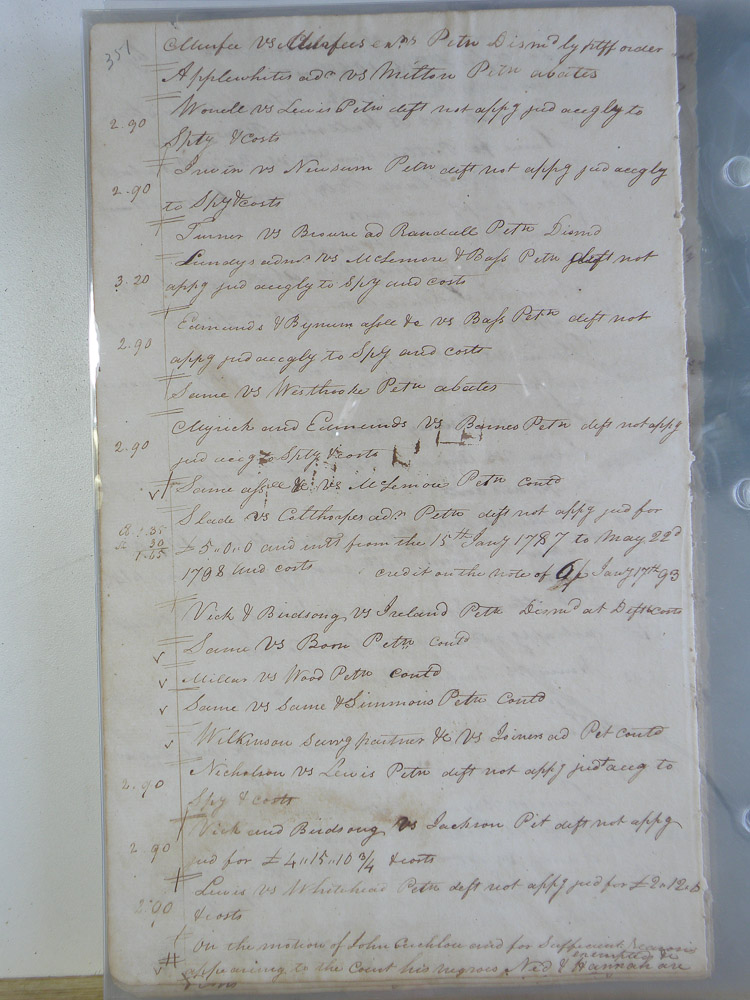 351
Murfee vs Murfees exrs Petn Dismd by ptff order
Applewhites adr vs Mitton Petn abates
2.90 Womell vs Lewis Petn deft not appg jud accgly to
Spty & costs
2.90 Irwin vs Newsum Petn deft not appg jud accgly
to Spy & costs
Turner vs Browne ad Randall Petn Dismd
3.20 Lundys admr vs McLemore & Bass Petn deft not
appg jud accgly to Spy and costs
2.90 Edmunds & Bynum assee &c vs Bass Petn deft not
appg jud accgly to Spy and costs
Same vs Westbrooke Petn abates
2.90 Myrick and Edmunds vs Barnes Petn deft not appg
jud accg to Spty & costs
Same assee &c vs McLemore Petn contd
Slade vs Colthorpes adr Petn deft not appg jud for
1.35
30
1.65
£5.0.0 and intt from the 15th Jany 1787 to May 22d
1798 and costs credit on the note of 6/ Jany 17th 93
Vick & Birdsong vs Ireland Petn Dismd at Defts costs
Same vs Boon Petn contd
Millar vs Wood Petn contd
Same vs Same & Simmons Petn Contd
Wilkinson survg partner &c vs Joiners ad Pet contd
2.90 Nicholson vs Lewis Petn deft not appg jud accg to
Spy & costs
Vick and Birdsong vs Jackson Pet deft not appg
2.90 jud for £4.15.10 3/4 & costs
Lewis vs Whitehead Petn deft not appg jud for £2.12.6
2.90 & costs
On the motion of John and for Sufficient reasons
appearing to the Court his negroes Ned & Hannah are
exempted &c